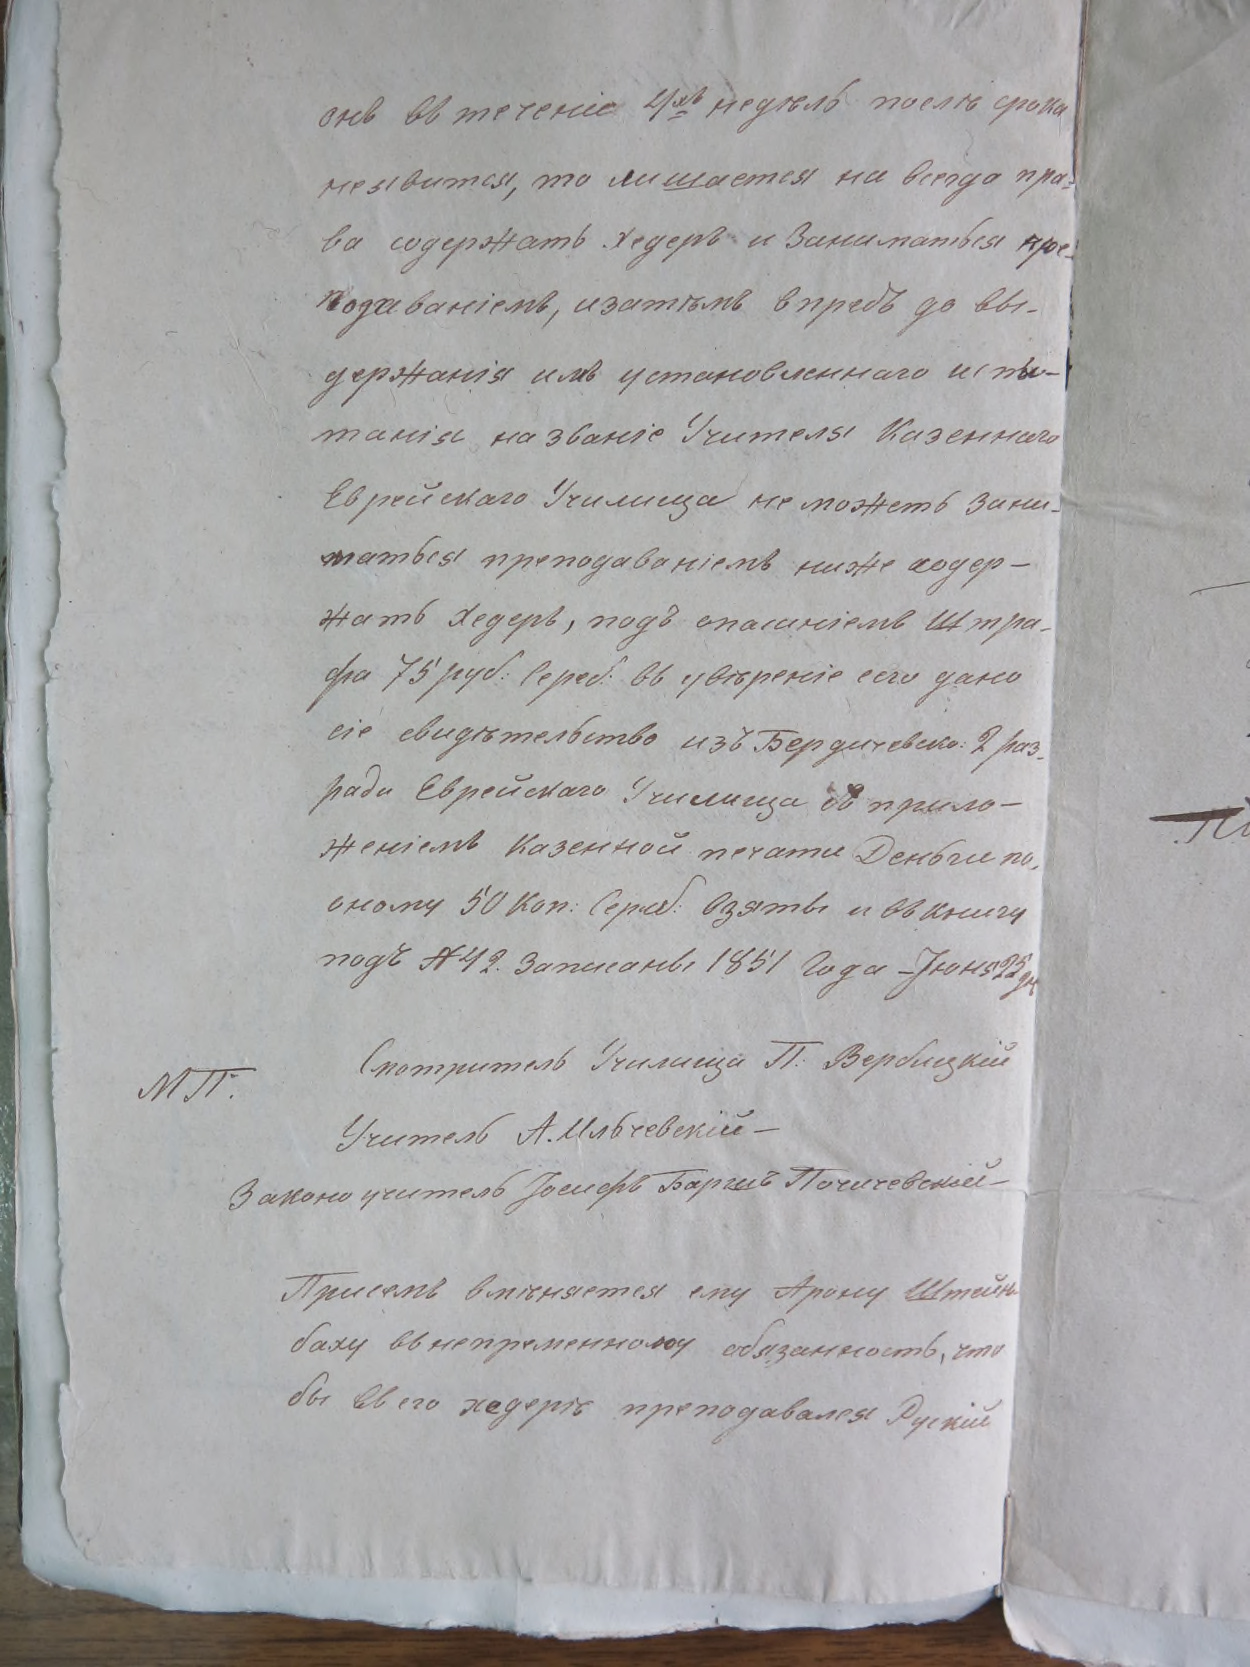 онъ въ теченіе 4хъ недѣль послѣ срока
неявится, то лишается на всегда пра-
ва содержать Хедеръ и Заниматься пре-
подаваніемъ, изатѣмъ впредъ до вы-
держанія имъ установленнаго испы-
танія на званіе Учителя Казеннаго
Еврейскаго Училища не можетъ Зани-
маться преподаваніемъ ниже содер-
жать Хедеръ, подъ опасаніемъ Штра-
фа 75 руб: Сереб: Въ увѣреніе сего дано
сіе свидѣтельство изъ Бердичевско: 2 раз-
ряда Еврейскаго Училища съ прило-
женіемъ Казенной печати Деньги по
оному 50 Коп: Сереб: Взяты и въ книгу
подъ № 42. Записаны 1851 Года Іюня 25 дня
Смотритель Училища П: Вербицкій
М П:
Учитель А. Ильчевскій
Законоучитель Іосифъ Почичевскій
Присемъ вмѣняется ему Арону Штейн-
баху въ непременному обязанность, что
бы въ его хедерѣ преподавался Рускій